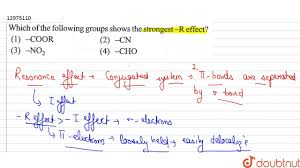 12975110
Which of the following groups shows the strongest –R effect?
(1) –COOR (2) –CN
(3) –NO₂ (4) –CHO
Resonance effect → Conjugated system → 2 π-bonds are separated
by σ bond
↳ I effect
-R effect > - I effect → σ-electrons
↳ π-electron → loosely held → easily delocalize
doubtnut